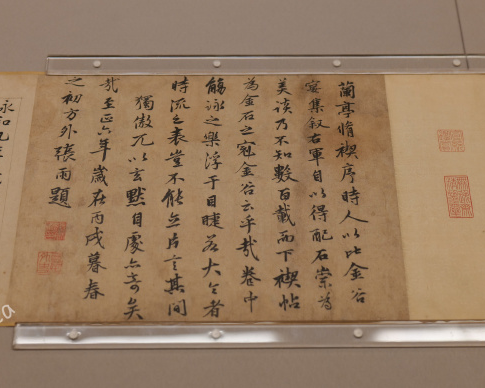 蘭亭脩禊序時人以比金谷
宴集叙右軍自以得配石崇為
美談乃不知數百載而下禊帖
為金石之冠金谷云乎哉卷中
觴詠之樂浮于目睫若大令者
時流之表豈不能立片言其間
獨傲兀以玄默自處亦奇矣
哉至正六年歲在丙戌暮春
之初方外張雨題
永和九